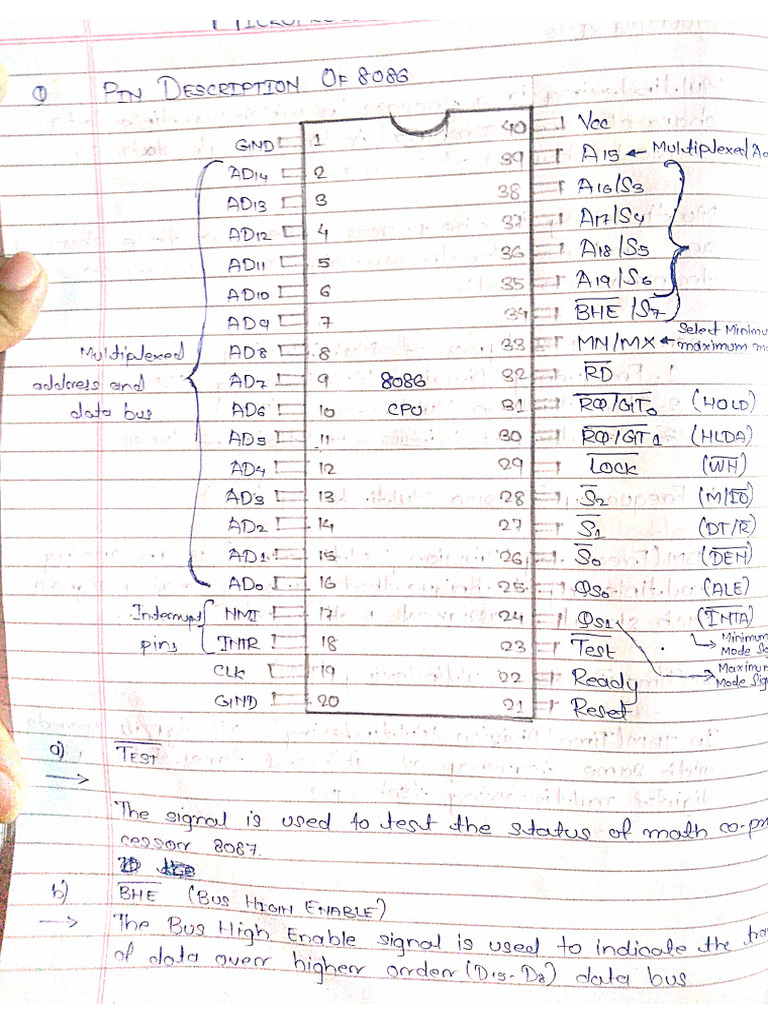 ① PIN DESCRIPTION OF 8086
GND 1 40 Vcc
AD14 2 39 A15 ← Multiplexed
AD13 3 38 A16/S3
AD12 4 37 A17/S4
AD11 5 36 A18/S5
AD10 6 35 A19/S6
AD9 7 34 B̅H̅E̅/S7
Select
AD8 8 33 MN/MX ←
Multiplexed
AD7 9 8086 32 R̅D̅
address and
AD6 10 CPU 31 R̅Q̅/G̅T̅0 (HOLD)
data bus
AD5 11 30 R̅Q̅/G̅T̅1 (HLDA)
AD4 12 29 L̅O̅C̅K̅ (W̅H̅)
AD3 13 28 S̅2 (M/I̅O̅)
AD2 14 27 S̅1 (DT/R̅)
AD1 15 26 S̅0 (D̅E̅N̅)
AD0 16 25 QS0 (ALE)
Interrupt NMI 17 24 QS1 (I̅N̅T̅A̅)
pins INTR 18 23 T̅e̅s̅t̅
Minimum
Mode
CLK 19 22 Ready
Mode
GND 20 21 Reset
a) T̅E̅S̅T̅
→
The signal is used to test the status of math
cessor 8087.
b) B̅H̅E̅ (BUS HIGH ENABLE)
→ The Bus High Enable signal is used to indicate the
of data overr higherr orrderr (D15-D8) data bus